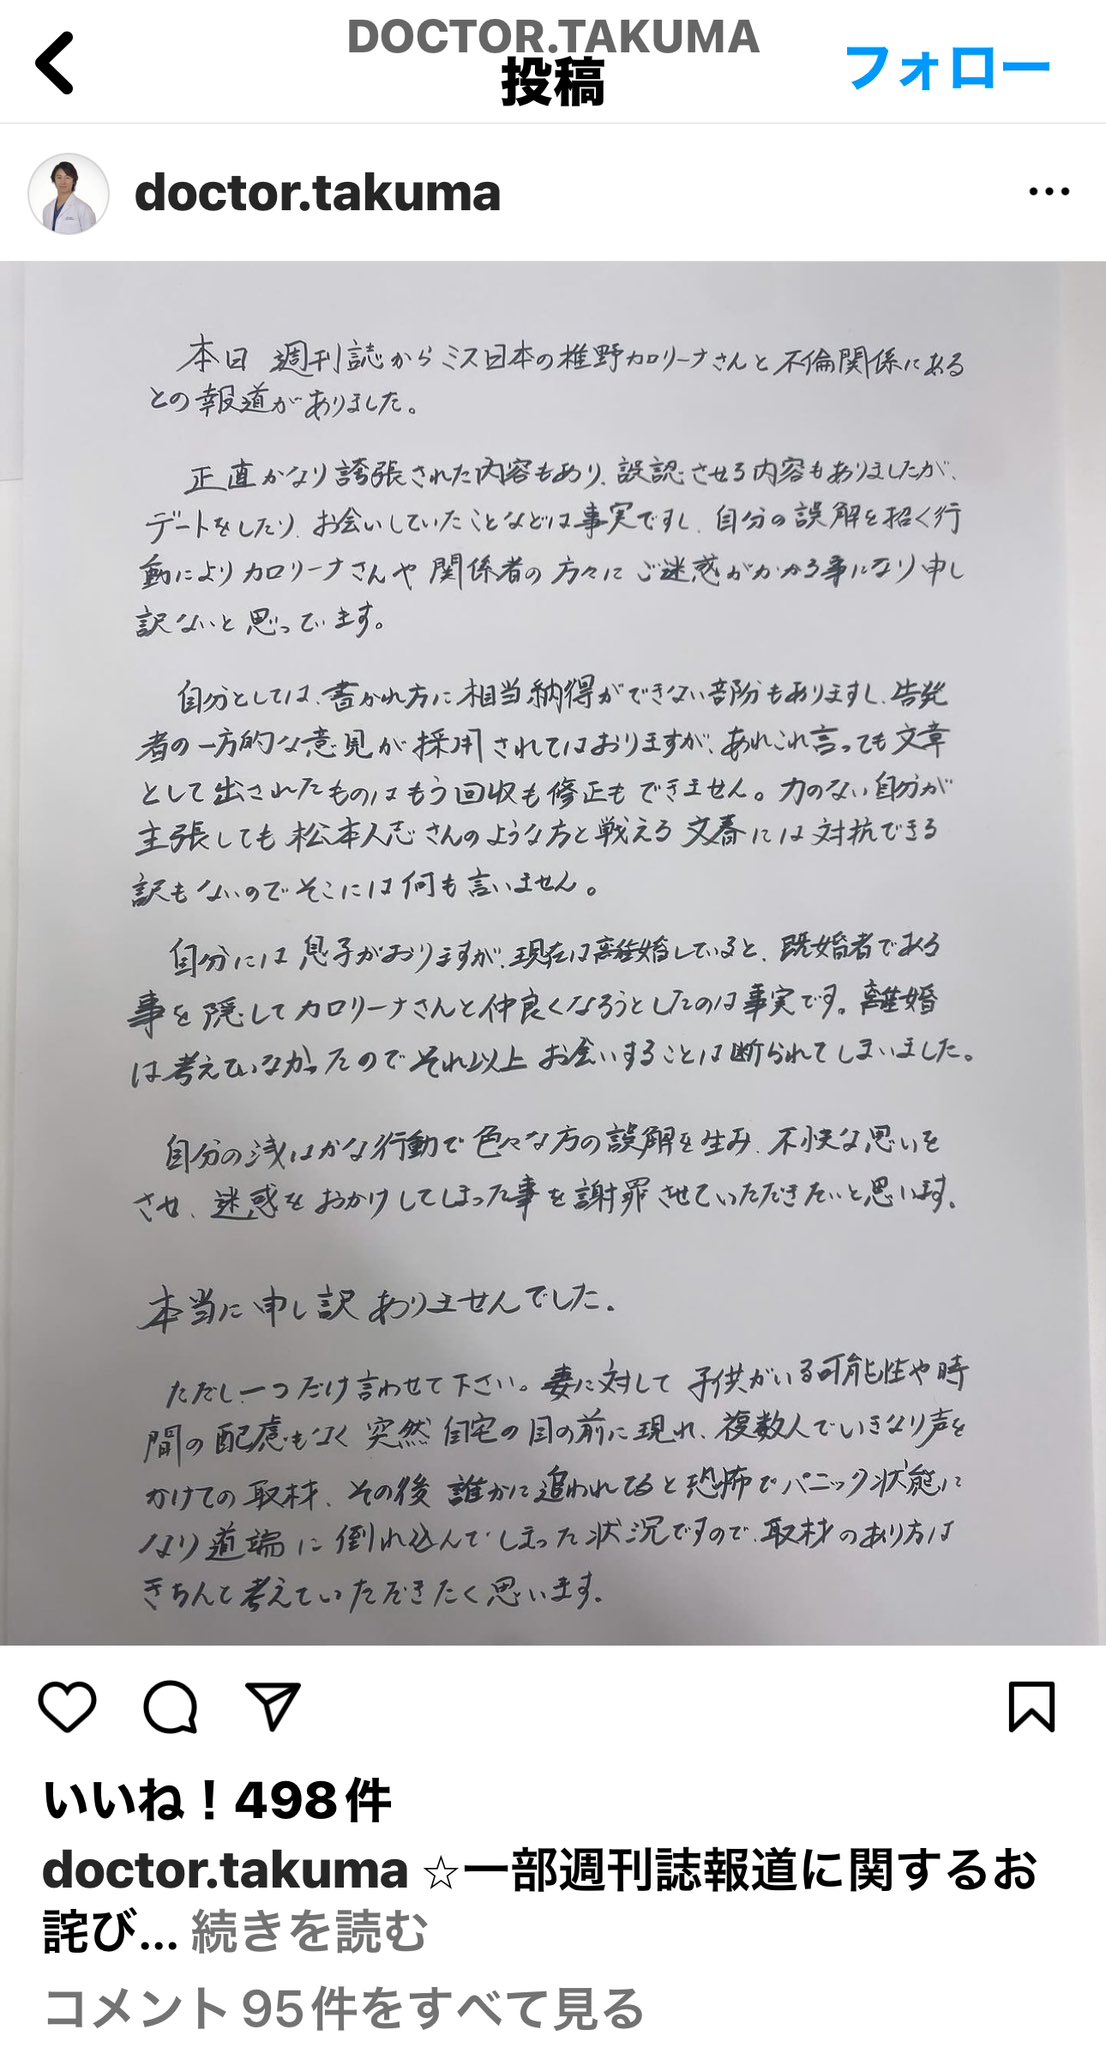 DOCTOR.TAKUMA
投稿
フォロー
doctor.takuma
本日 週刊誌からミス日本の椎野カロリーナさんと不倫関係にある
との報道がありました。
正直かなり誇張された内容もあり、誤認させる内容もありましたが、
デートをしたり、お会いしていたことなどは事実ですし、自分の誤解を招く行
動によりカロリーナさんや関係者の方々にご迷惑がかかる事になり申し
訳ないと思っています。
自分としては、書かれ方に相当納得ができない部分もありますし、告発
者の一方的な意見が採用されてはおりますが、あれこれ言っても文章
として出されたものはもう回収も修正もできません。力のない自分が
主張しても松本人志さんのような方と戦える文春には対抗できる
訳もないのでそこには何も言いません。
自分には息子がおりますが、現在は離婚していると、既婚者である
事を隠してカロリーナさんと仲良くなろうとしたのは事実です。離婚
は考えていなかったのでそれ以上お会いすることは断られてしまいました。
自分の浅はかな行動で色々な方の誤解を生み、不快な思いを
させ、迷惑をおかけしてしまった事を謝罪させていただきたいと思います。
本当に申し訳ありませんでした。
ただし一つだけ言わせて下さい。妻に対して子供がいる可能性や時
間の配慮もなく突然自宅の目の前に現れ、複数人でいきなり声を
かけての取材、その後誰かに追われてると恐怖でパニック状態に
なり道端に倒れ込んでしまった状況ですので、取材のあり方は
きちんと考えていただきたく思います。
いいね！498件
doctor.takuma ☆一部週刊誌報道に関するお
詫び... 続きを読む
コメント95件をすべて見る